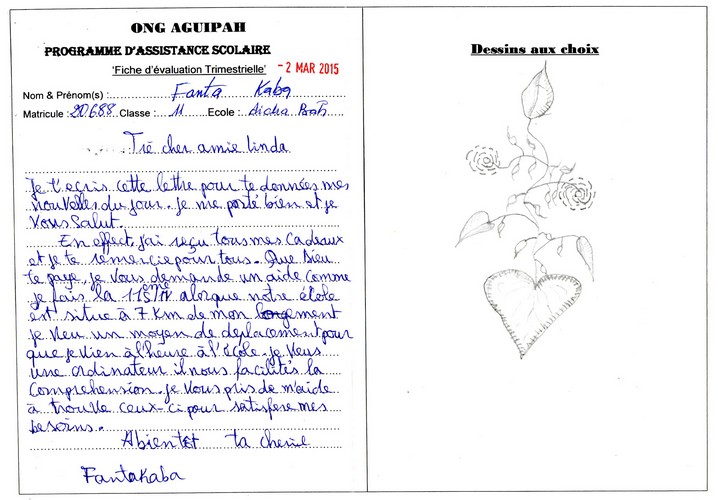 ONG AGUIPAH
PROGRAMME D'ASSISTANCE SCOLAIRE
'Fiche d'évaluation Trimestrielle' - 2 MAR 2015
Nom & Prénom(s) : Fanta Kaba
Matricule : 20688 Classe : 11 Ecole : Aicha Bah
Trè cher amie linda
Je t'ecris cette lettre pour te données mes
nouvelles du jour. Je me porté bien et je
Vous Salut.
En effect, j'ai reçu tous mes Cadeaux
et je te remercie pour tous. Que Dieu
te paye, je Vous demande un aide comme
je fais la 11ème alorque notre école
est situe à 7 Km de mon logement
je Veu un moyen de deplacement pour
que je Vien à l'heure à l'école. je Veus
une ordinateur il nous facilités la
Comprehension. je Vous pris de m'aide
à trouve ceux-ci pour satisfere mes
besoins.
Abientèt ta cherie
Fanta Kaba
Dessins aux choix